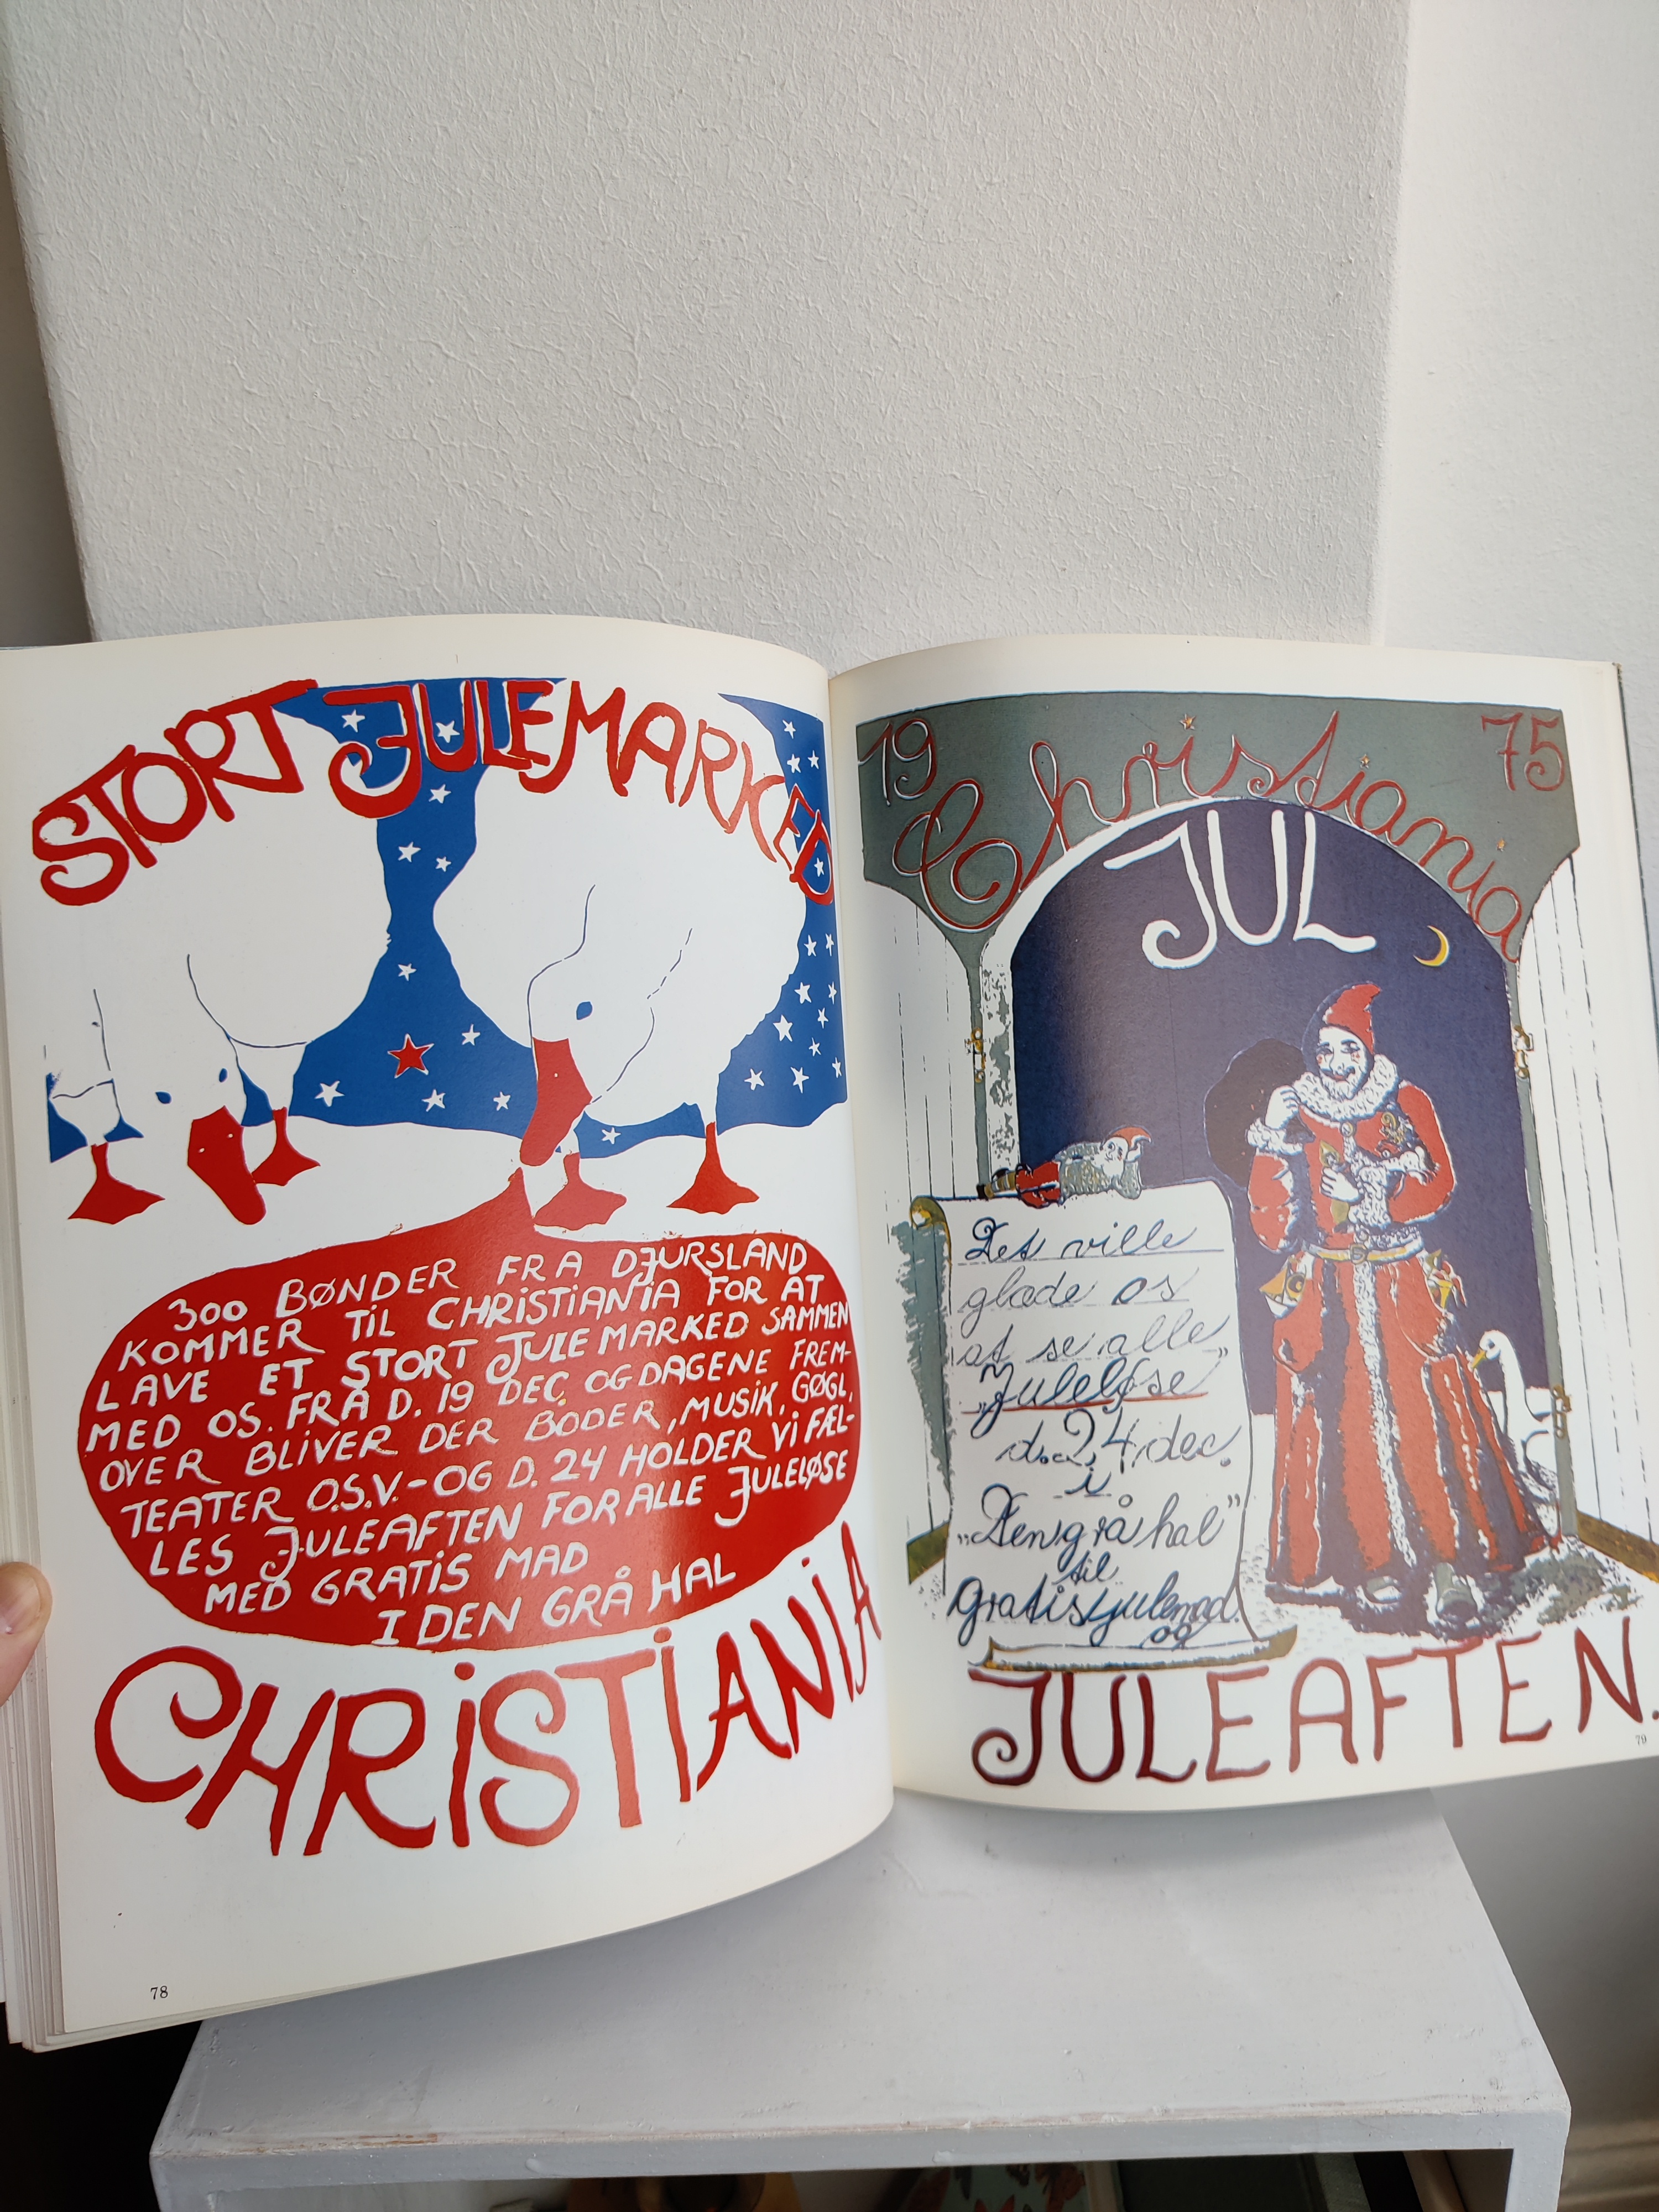 STORT JULEMARKED
300 BØNDER FRA DJURSLAND
KOMMER TIL CHRISTIANIA FOR AT
LAVE ET STORT JULEMARKED SAMMEN
MED OS. FRA D. 19 DEC OG DAGENE FREM-
OVER BLIVER DER BODER, MUSIK, GØGL,
TEATER O.S.V.-OG D. 24 HOLDER VI FÆL-
LES JULEAFTEN FOR ALLE JULELØSE
MED GRATIS MAD
I DEN GRÅ HAL
CHRISTIANIA
78
19 75
Christiania
JUL
Det ville
glæde os
at se alle
„Juleløse”
d. 24 dec.
i
„Den grå hal”
til
gratis julemad.
og
JULEAFTEN.
79